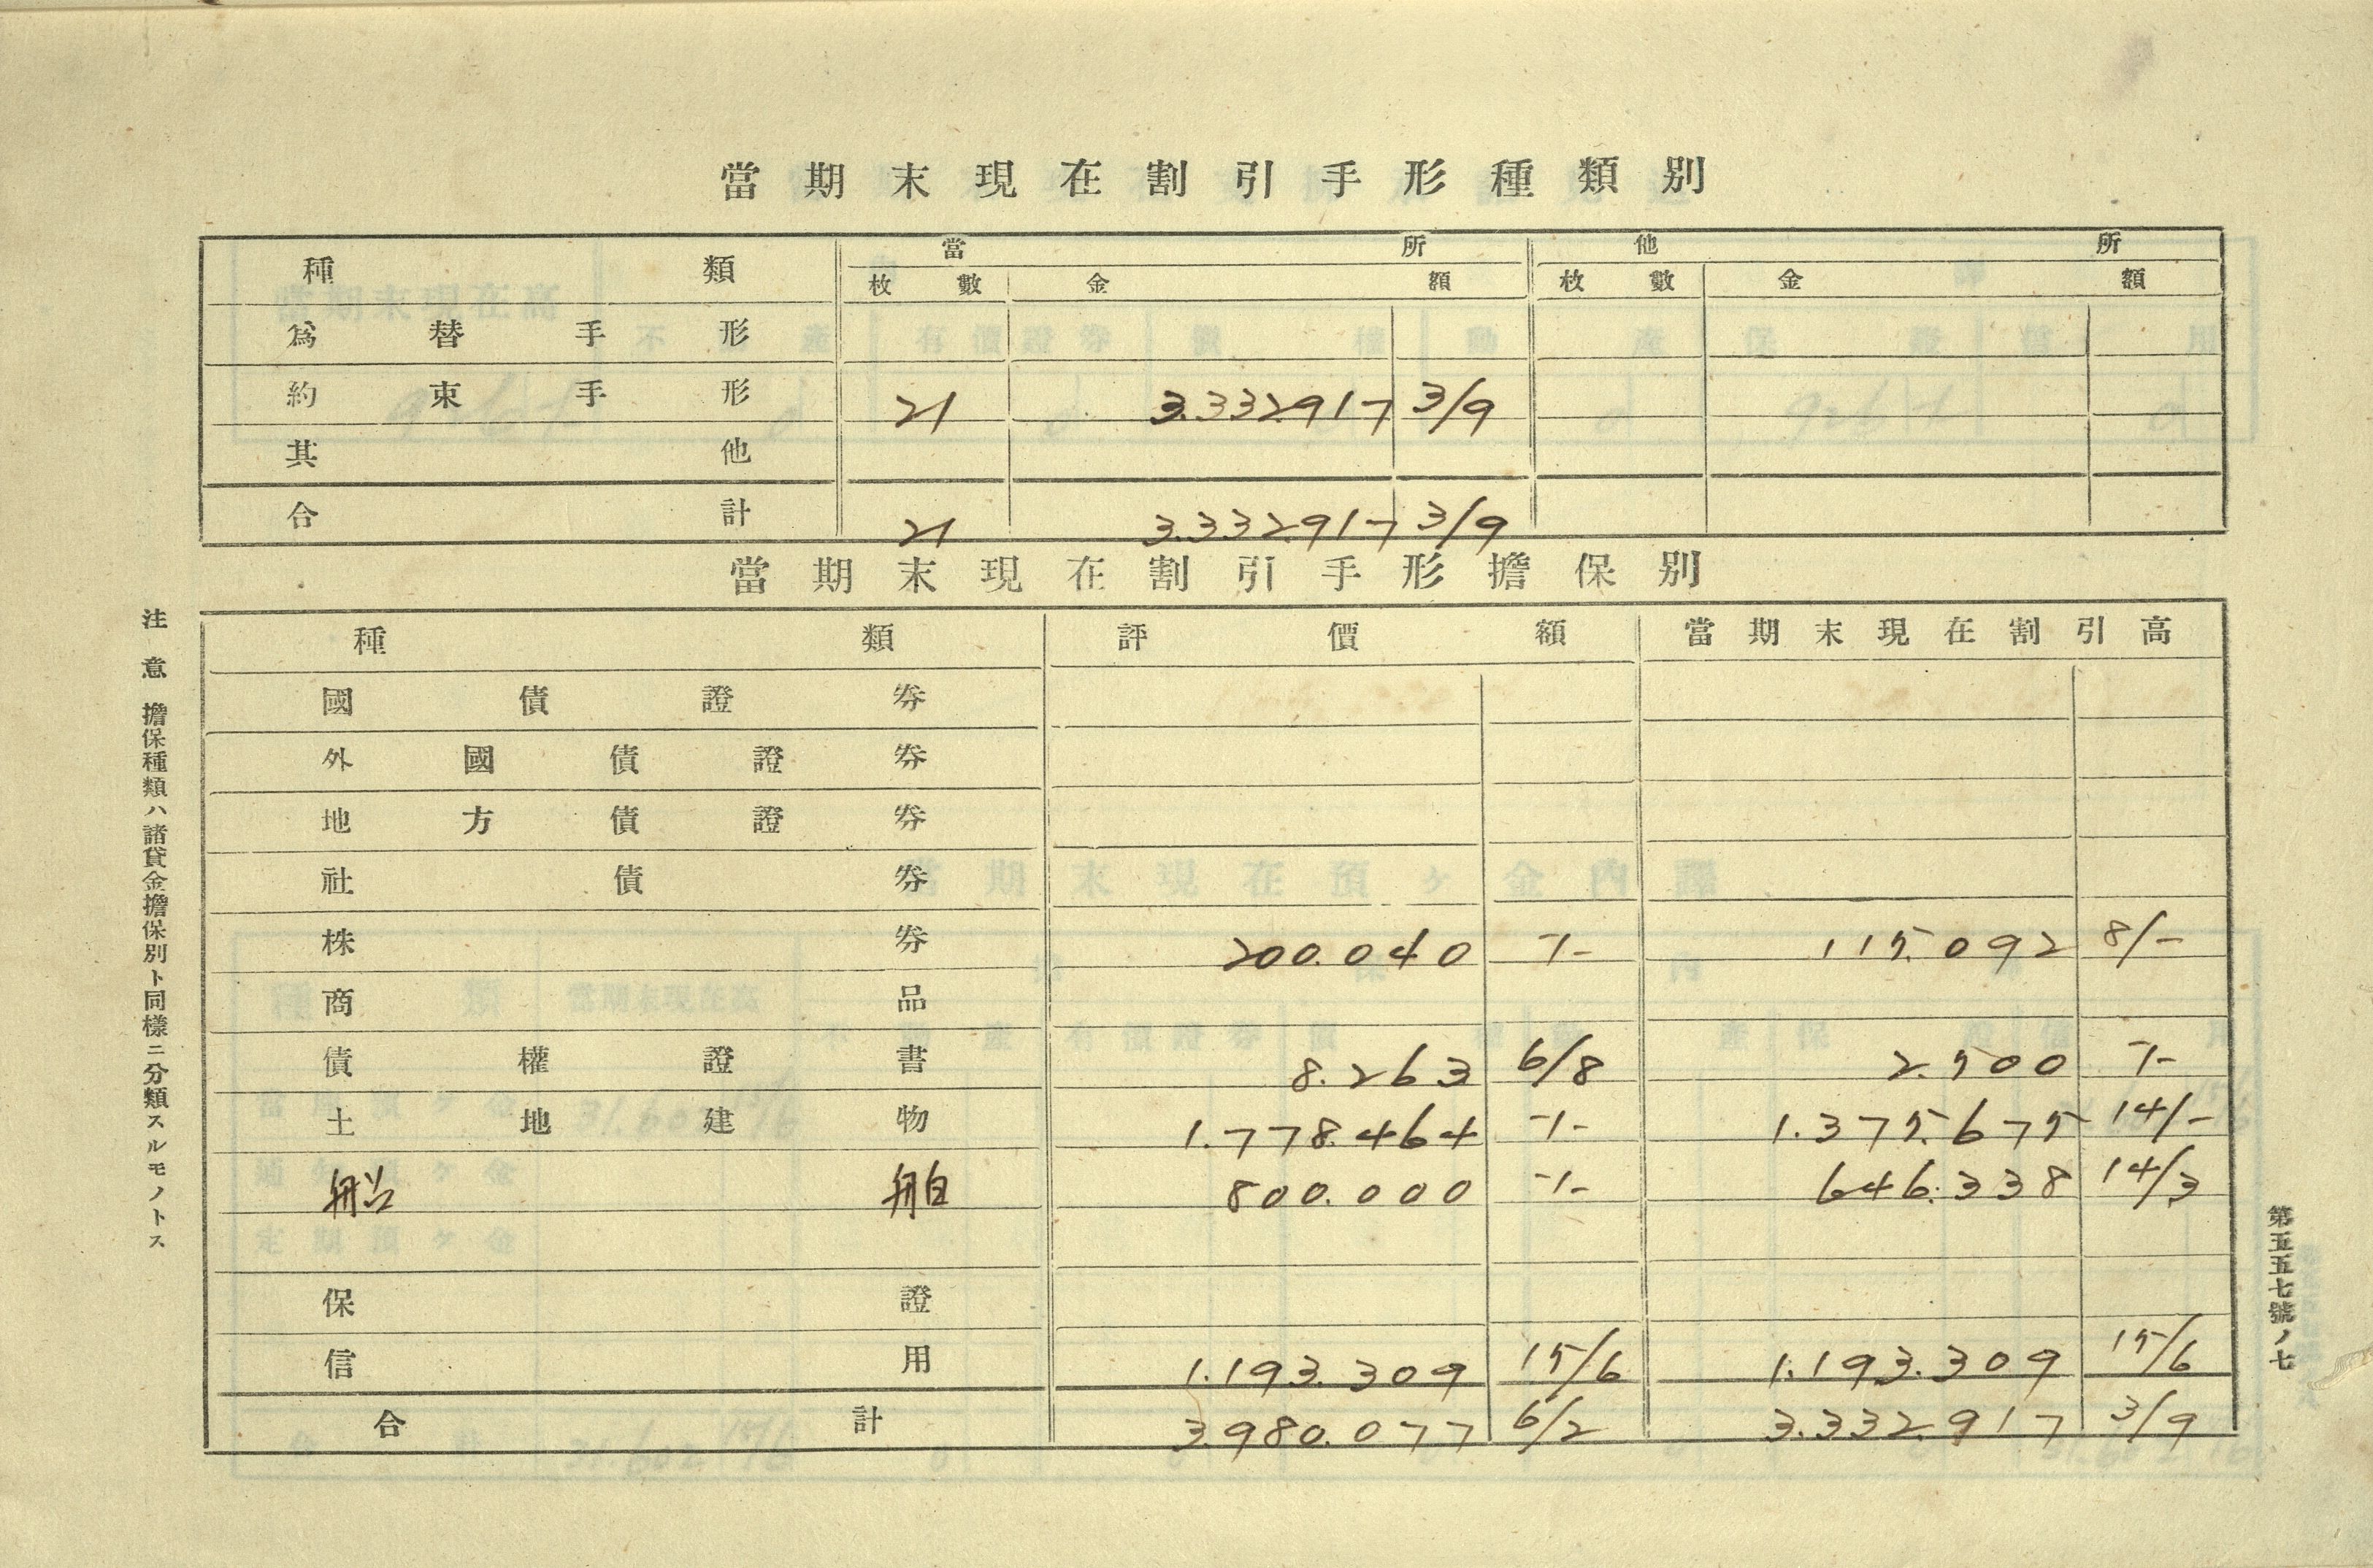 當期末現在割引手形種類別
種類 當所 他所
枚數 金額 枚數 金額
爲替手形
約束手形 21 3.332.917 3/9
其他
合計 21 3.332.917 3/9
當期末現在割引手形擔保別
種類 評價額 當期末現在割引高
國債證券
外國債證券
地方債證券
社債券
株券 200.040 -/- 115.092 8/-
商品
債權證書 8.263 6/8 2.500 -/-
土地建物 1.778.464 -/- 1.375.675 14/-
船舶 800.000 -/- 646.338 14/3
保證
信用 1.193.309 15/6 1.193.309 15/6
合計 3.980.077 6/2 3.332.917 3/9
注意 擔保種類ハ諸貸金擔保別ト同樣ニ分類スルモノトス
第五五七號ノ七